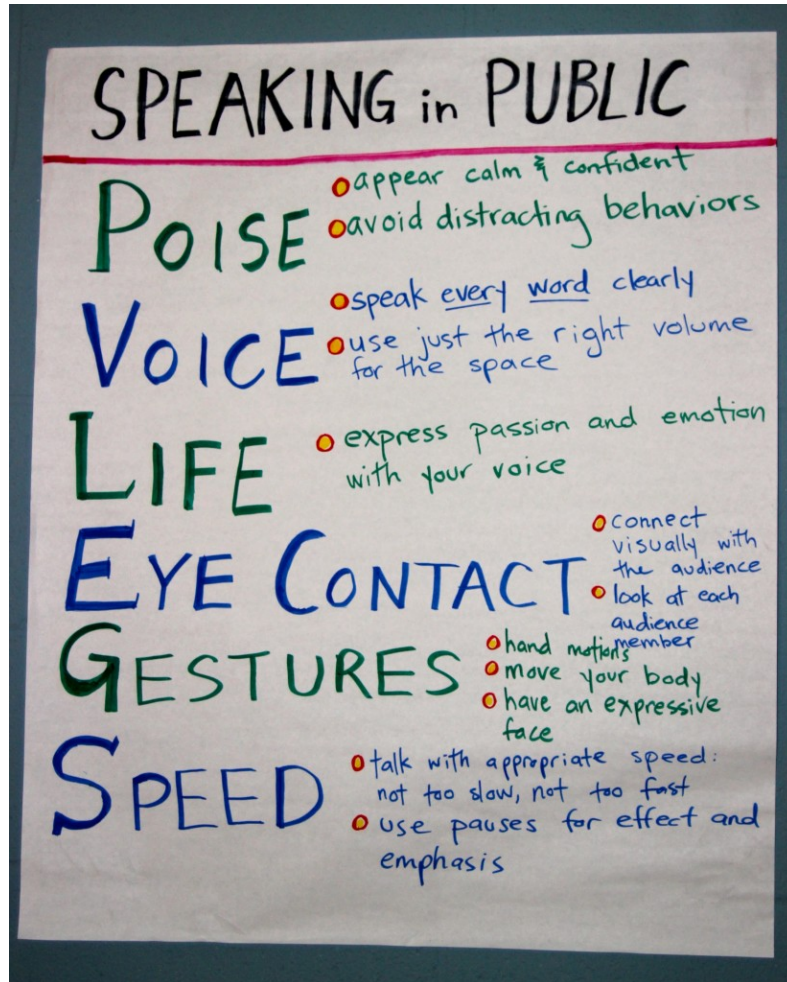 SPEAKING in PUBLIC
POISE
• appear calm & confident
• avoid distracting behaviors
VOICE
• speak every word clearly
• use just the right volume
for the space
LIFE
• express passion and emotion
with your voice
EYE CONTACT
• connect
visually with
the audience
• look at each
audience
member
GESTURES
• hand motions
• move your body
• have an expressive
face
SPEED
• talk with appropriate speed:
not too slow, not too fast
• use pauses for effect and
emphasis